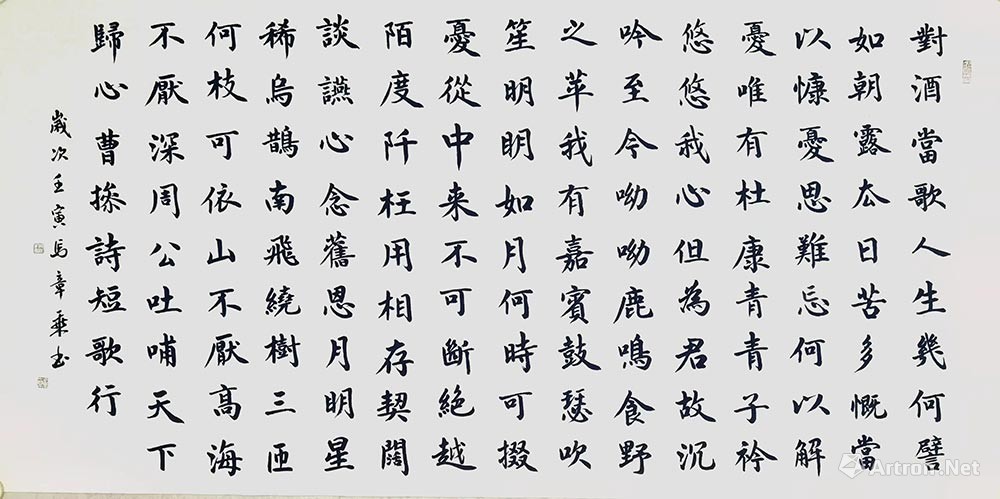 對酒當歌人生幾何譬
如朝露厺日苦多慨當
以慷憂思難忘何以解
憂唯有杜康青青子衿
悠悠我心但為君故沉
吟至今呦呦鹿鳴食野
之苹我有嘉賓鼓瑟吹
笙明明如月何時可掇
憂從中来不可斷絕越
陌度阡枉用相存契闊
談讌心念舊恩月明星
稀烏鵲南飛繞樹三匝
何枝可依山不厭高海
不厭深周公吐哺天下
歸心曹操詩短歌行
歲次壬寅馬章乘书
Artron.Net